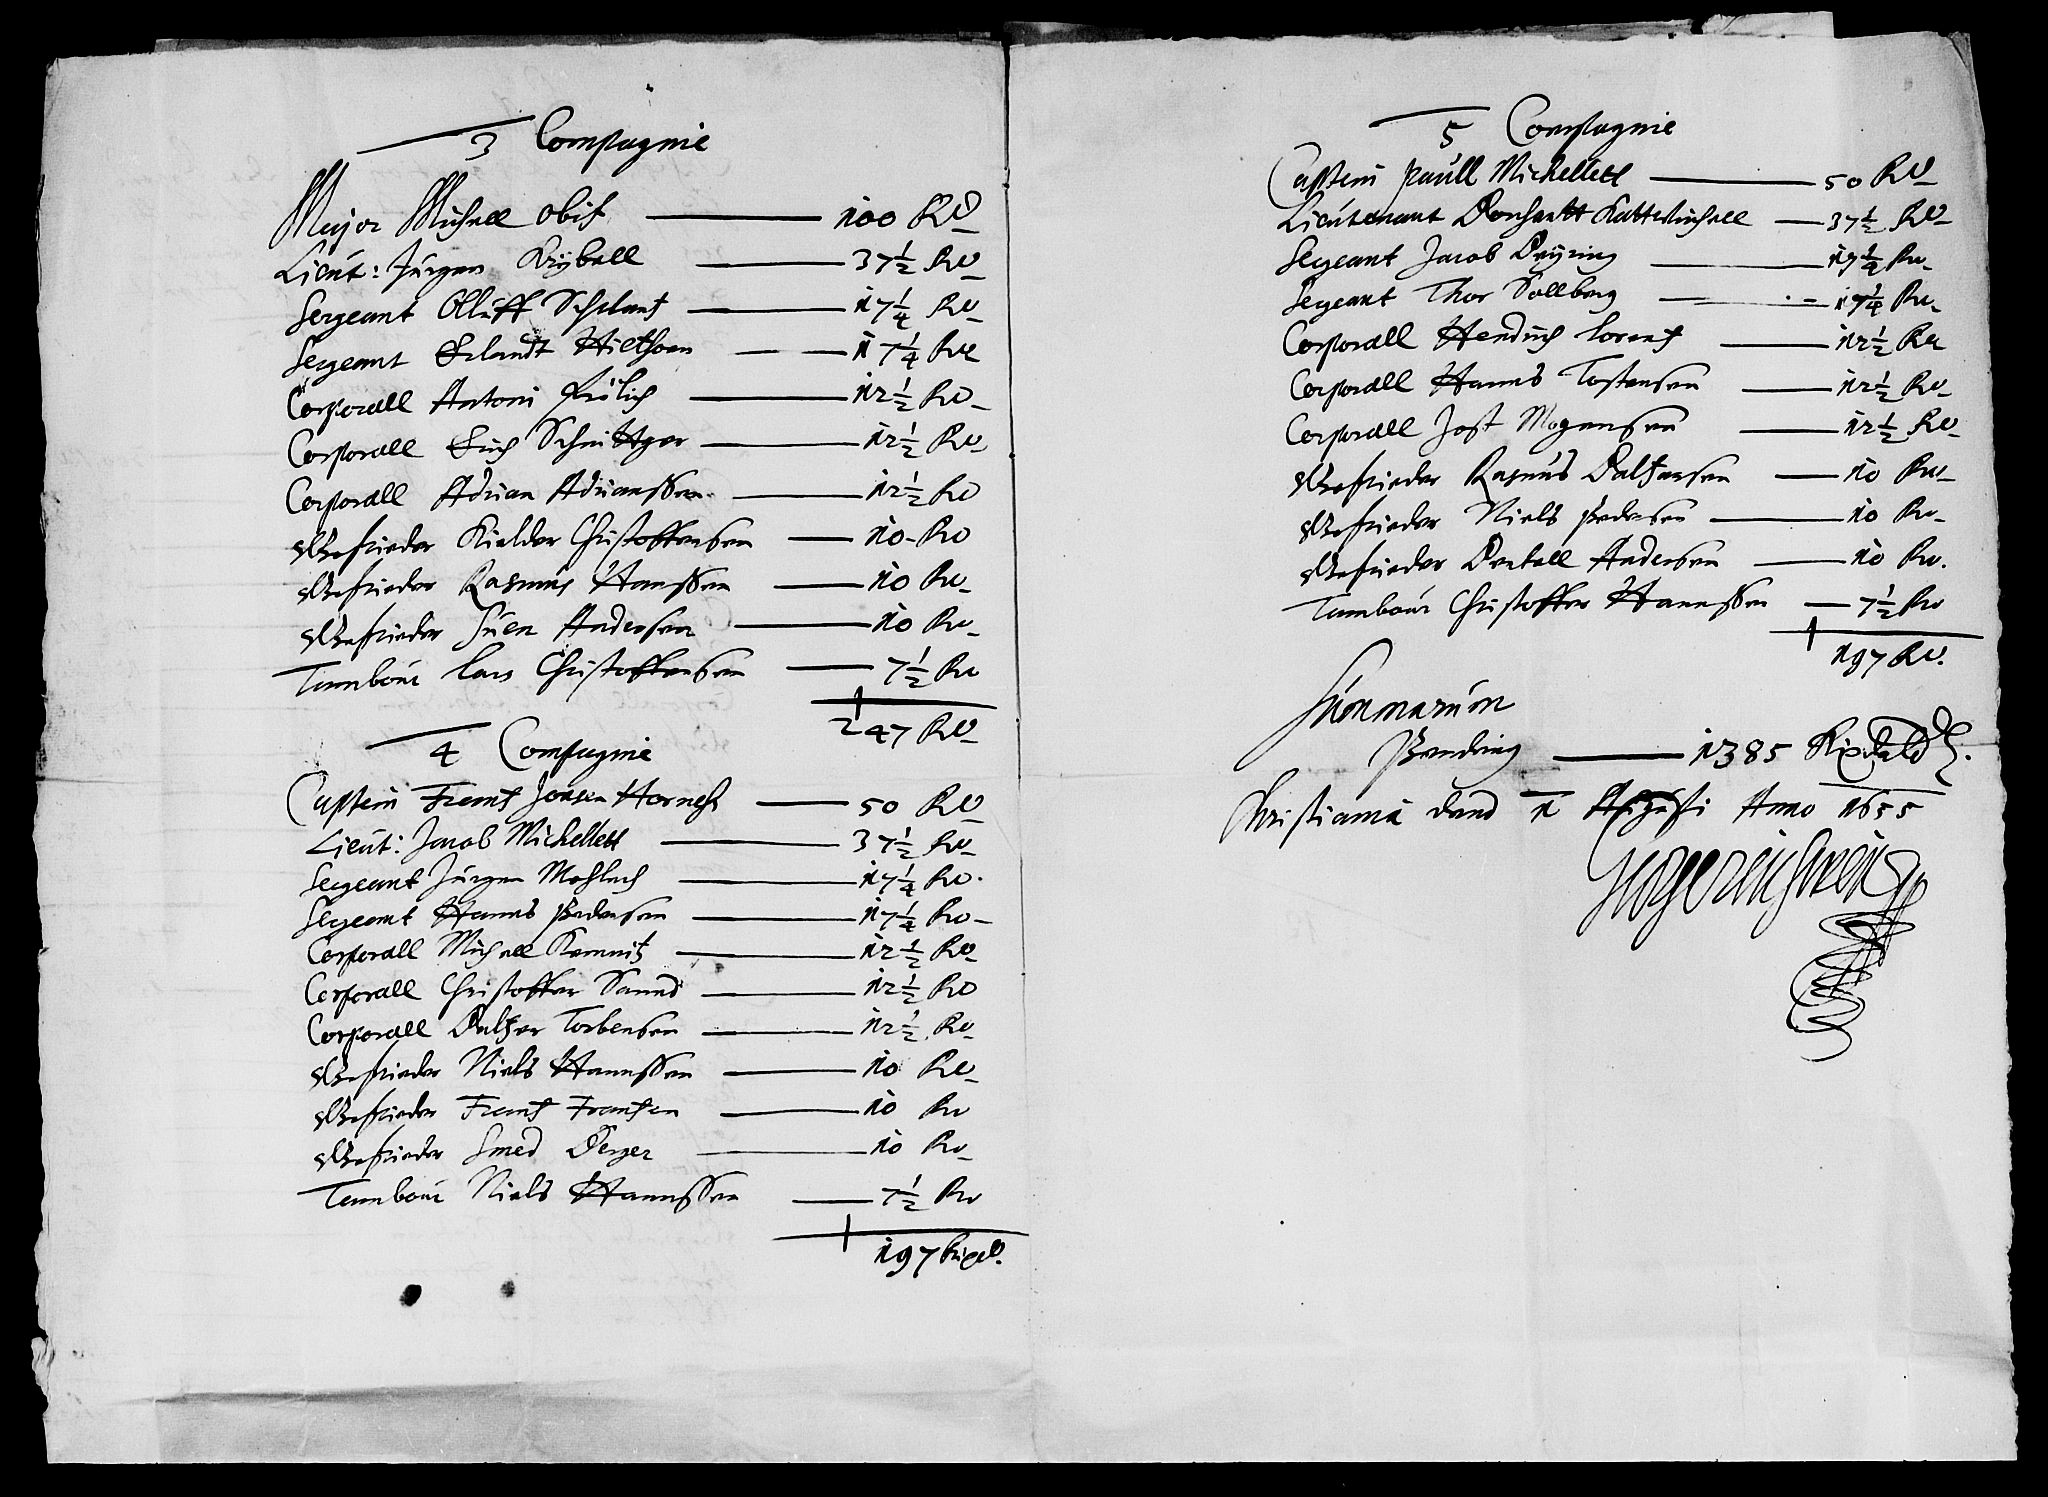 3 Compagnie
Major Michell Obitz 100 RD
Lieut: Jürgen Krÿbell 37½ RD
Sergeant Olluff Schulantz 17¼ RD
Sergeant Erlandt Hielthoen 17¼ RD
Corporall Antoni Frölich 12½ RD
Corporall Erich Schnittger 12½ RD
Corporall Adrian Adrianssen 12½ RD
Gefrieder Kielder Christoffersen 10 RD
Gefrieder Rasmus Hanssen 10 RD
Gefrieder Suen Andersen 10 RD
Tambour Lars Christoffersen 7½ RD
247 RD
4 Compagnie
Captein Frantz Jonsen 50 RD
Lieut: Jacob Michellett 37½ RD
Sergeant Jürgen Mohlach 17¼ RD
Sergeant Hanns Pedersen 17¼ RD
Corporall Michaell Kemnitz 12½ RD
Corporall Christoffer Sannd 12½ RD
Corporall Baltzer Torbensen 12½ RD
Gefrieder Niels Hannssen 10 RD
Gefrieder Frantz Frantzen 10 RD
Gefrieder Smed Berger 10 RD
Tambour Niels Hannssen 7½ RD
197 Rixd.
5 Compagnie
Captein Paull Michellett 50 RD
Lieutenant Bernhartt Katterwichell 37½ RD
Sergeant Jacob Deÿring 17¼ RD
Sergeant Thor Sollberg 17¼ RD
Corporall Hendrich Lorentz 12½ RD
Corporall Hanns Tostensen 12½ RD
Corporall Jost Mogensen 12½ RD
Gefrieder Rasmus Baltzersen 10 RD
Gefrieder Niels Pedersen 10 RD
Gefrieder Bertell Andersen 10 RD
Tambour Christoffer Hannssen 7½ RD
197 RD.
Summarum
Penning 1385 Rixdald.
Christiania dend 1 Augusti Anno 1655